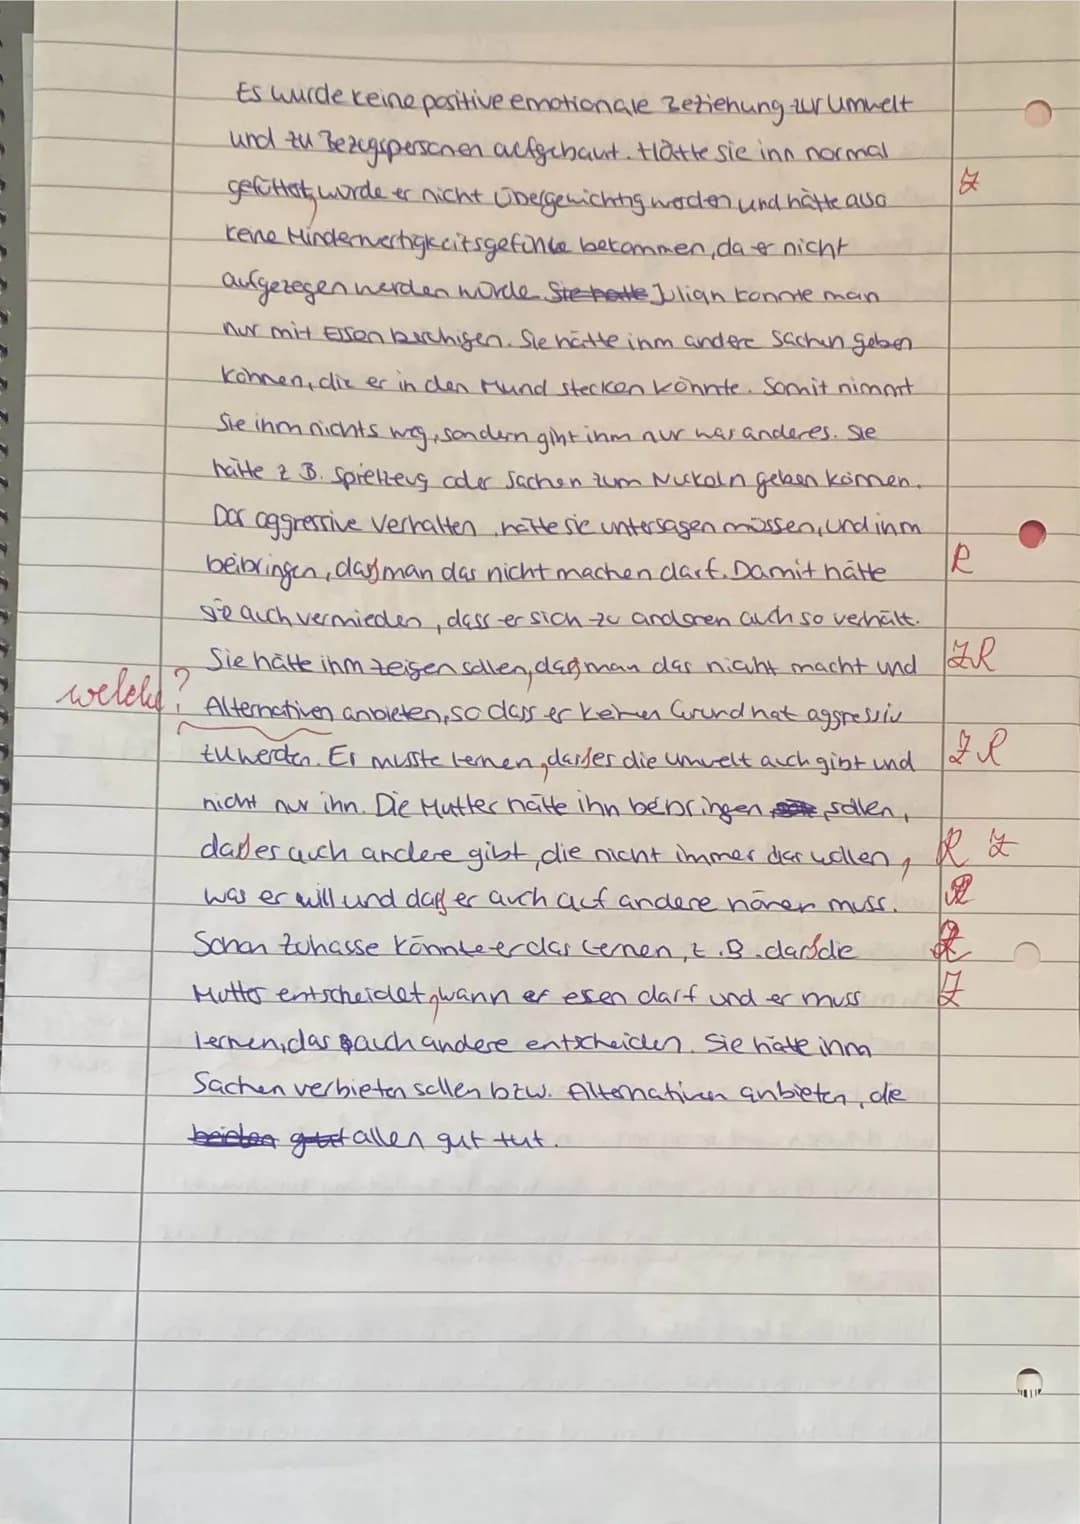 Es wurde keine positive emotionale Beziehung zur Umwelt
und zu Bezugspersonen aufgebaut. Hätte sie ihn normal
gefüttert, würde er nicht Übergewichtig werden und hätte also Z
keine Minderwertigkeitsgefühle bekommen, da er nicht
aufgezogen werden würde. Sie hatte Julian konnte man
nur mit Essen beruhigen. Sie hätte ihm andere Sachen geben
können, die er in den Mund stecken könnte. Somit nimmt
Sie ihm nichts weg, sondern gibt ihm nur was anderes. Sie
hätte z.B. Spielzeug oder Sachen zum Nuckeln geben können.
Das aggressive Verhalten, hätte sie untersagen müssen, und ihm
beibringen, das man das nicht machen darf. Damit hätte R
sie auch vermieden, dass er sich zu anderen auch so verhält.
Sie hätte ihm zeigen sollen, das man das nicht macht und ZR
welche? Alternativen anbieten, so dass er keinen Grund hat aggressiv
zu werden. Er musste lernen, das es die Umwelt auch gibt und Z R
nicht nur ihn. Die Mutter hätte ihn beibringen, sollen,
das es auch andere gibt, die nicht immer das wollen, R Z
was er will und das er auch auf andere hören muss. R
Schon zuhasse könnte er das lernen, z.B. das die R
Mutter entscheidet, wann er esen darf und er muss Z
lernen, das auch andere entscheiden. Sie hätte ihm
Sachen verbieten sollen bzw. Alternativen anbieten, die
beiden gutet allen gut tut.